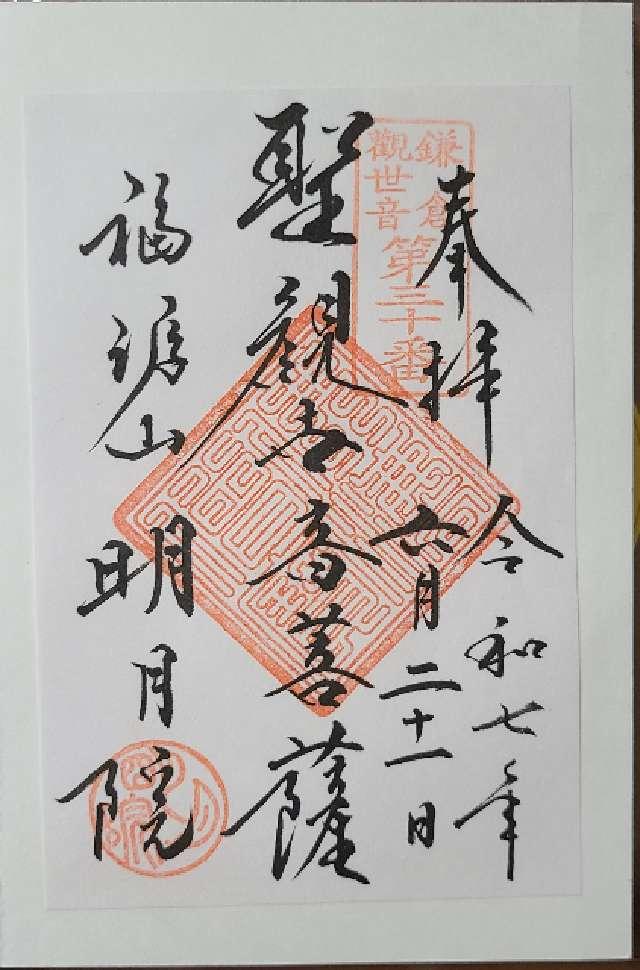 奉拝
令和七年
六月二十一日
鎌倉
觀世音
第三十番
聖観世音菩薩
福源山
明月院